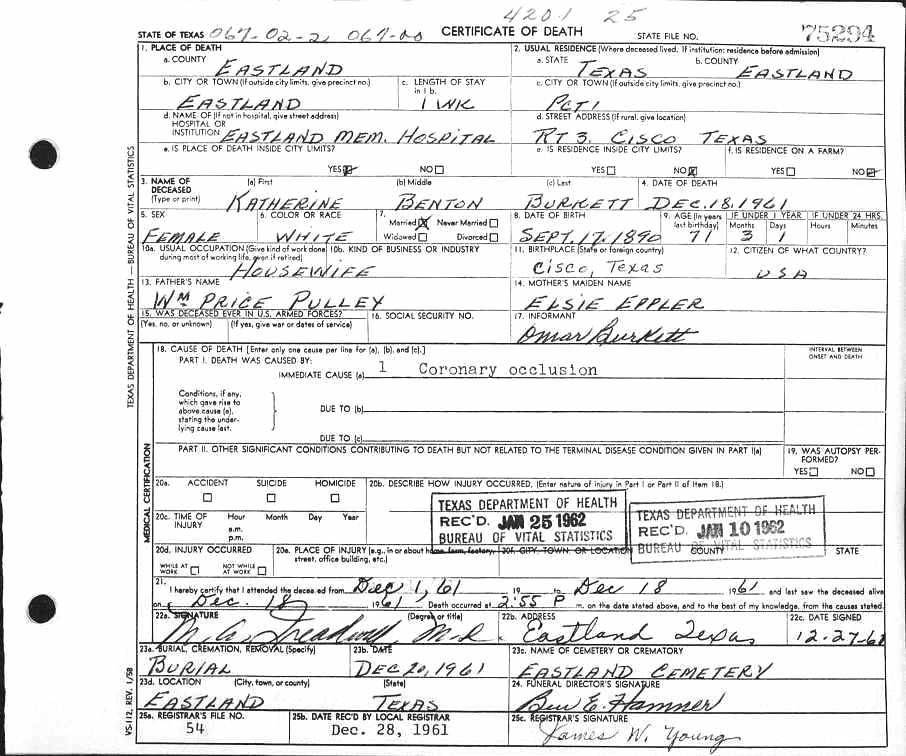 4201 25
STATE OF TEXAS 067-02-2, 067-00 CERTIFICATE OF DEATH STATE FILE NO. 75294
1. PLACE OF DEATH 2. USUAL RESIDENCE (Where deceased lived. If institution: residence before admission)
a. COUNTY EASTLAND a. STATE TEXAS b. COUNTY EASTLAND
b. CITY OR TOWN (If outside city limits, give precinct no.) c. LENGTH OF STAY in 1 b. c. CITY OR TOWN (If outside city limits, give precinct no.)
EASTLAND 1 WK PCT 1
d. NAME OF (If not in hospital, give street address) HOSPITAL OR INSTITUTION EASTLAND MEM. HOSPITAL d. STREET ADDRESS (If rural, give location) RT 3, CISCO TEXAS
e. IS PLACE OF DEATH INSIDE CITY LIMITS? e. IS RESIDENCE INSIDE CITY LIMITS? f. IS RESIDENCE ON A FARM?
YES NO YES NO YES NO
3. NAME OF DECEASED (Type or print) (a) First (b) Middle (c) Last 4. DATE OF DEATH
KATHERINE BENTON BURKETT DEC. 18, 1961
5. SEX 6. COLOR OR RACE 7. Married Never Married Widowed Divorced 8. DATE OF BIRTH 9. AGE (In years last birthday) IF UNDER 1 YEAR Months Days IF UNDER 24 HRS. Hours Minutes
FEMALE WHITE SEPT. 17, 1890 71 3 1
10a. USUAL OCCUPATION (Give kind of work done during most of working life, even if retired) 10b. KIND OF BUSINESS OR INDUSTRY 11. BIRTHPLACE (State or foreign country) 12. CITIZEN OF WHAT COUNTRY?
HOUSEWIFE CISCO, TEXAS USA
13. FATHER'S NAME 14. MOTHER'S MAIDEN NAME
WM PRICE PULLEY ELSIE EPPLER
15. WAS DECEASED EVER IN U.S. ARMED FORCES? 16. SOCIAL SECURITY NO. 17. INFORMANT
(Yes, no, or unknown) (If yes, give war or dates of service) Omar Burkett
18. CAUSE OF DEATH [Enter only one cause per line for (a), (b), and (c).] INTERVAL BETWEEN ONSET AND DEATH
PART I. DEATH WAS CAUSED BY:
IMMEDIATE CAUSE (a) 1 Coronary occlusion
Conditions, if any, which gave rise to above cause (a), stating the underlying cause last.
DUE TO (b)
DUE TO (c)
PART II. OTHER SIGNIFICANT CONDITIONS CONTRIBUTING TO DEATH BUT NOT RELATED TO THE TERMINAL DISEASE CONDITION GIVEN IN PART I(a) 19. WAS AUTOPSY PERFORMED?
YES NO
20a. ACCIDENT SUICIDE HOMICIDE 20b. DESCRIBE HOW INJURY OCCURRED. (Enter nature of injury in Part I or Part II of Item 18.)
20c. TIME OF INJURY Hour Month Day Year a.m. p.m.
TEXAS DEPARTMENT OF HEALTH
REC'D. JAN 25 1962
BUREAU OF VITAL STATISTICS
TEXAS DEPARTMENT OF HEALTH
REC'D. JAN 10 1962
BUREAU OF VITAL STATISTICS
20d. INJURY OCCURRED 20e. PLACE OF INJURY (e.g., in or about home, farm, factory, street, office building, etc.) 20f. CITY, TOWN, OR LOCATION COUNTY STATE
WHILE AT WORK NOT WHILE AT WORK
21. I hereby certify that I attended the deceased from Dec 1, 61 19 to Dec 18 1961 and last saw the deceased alive
on Dec. 18 1961 Death occurred at 2:55 P m. on the date stated above, and to the best of my knowledge, from the causes stated.
22a. SIGNATURE (Degree or title) 22b. ADDRESS 22c. DATE SIGNED
M. A. Treadwell, M.D. Eastland Texas 12-27-61
23a. BURIAL, CREMATION, REMOVAL (Specify) 23b. DATE 23c. NAME OF CEMETERY OR CREMATORY
BURIAL DEC 20, 1961 EASTLAND CEMETERY
23d. LOCATION (City, town, or county) (State) 24. FUNERAL DIRECTOR'S SIGNATURE
EASTLAND TEXAS Ben E. Hamner
25a. REGISTRAR'S FILE NO. 25b. DATE REC'D BY LOCAL REGISTRAR 25c. REGISTRAR'S SIGNATURE
54 Dec. 28, 1961 James W. Young
TEXAS DEPARTMENT OF HEALTH — BUREAU OF VITAL STATISTICS
MEDICAL CERTIFICATION
VS-112, REV. 1/58